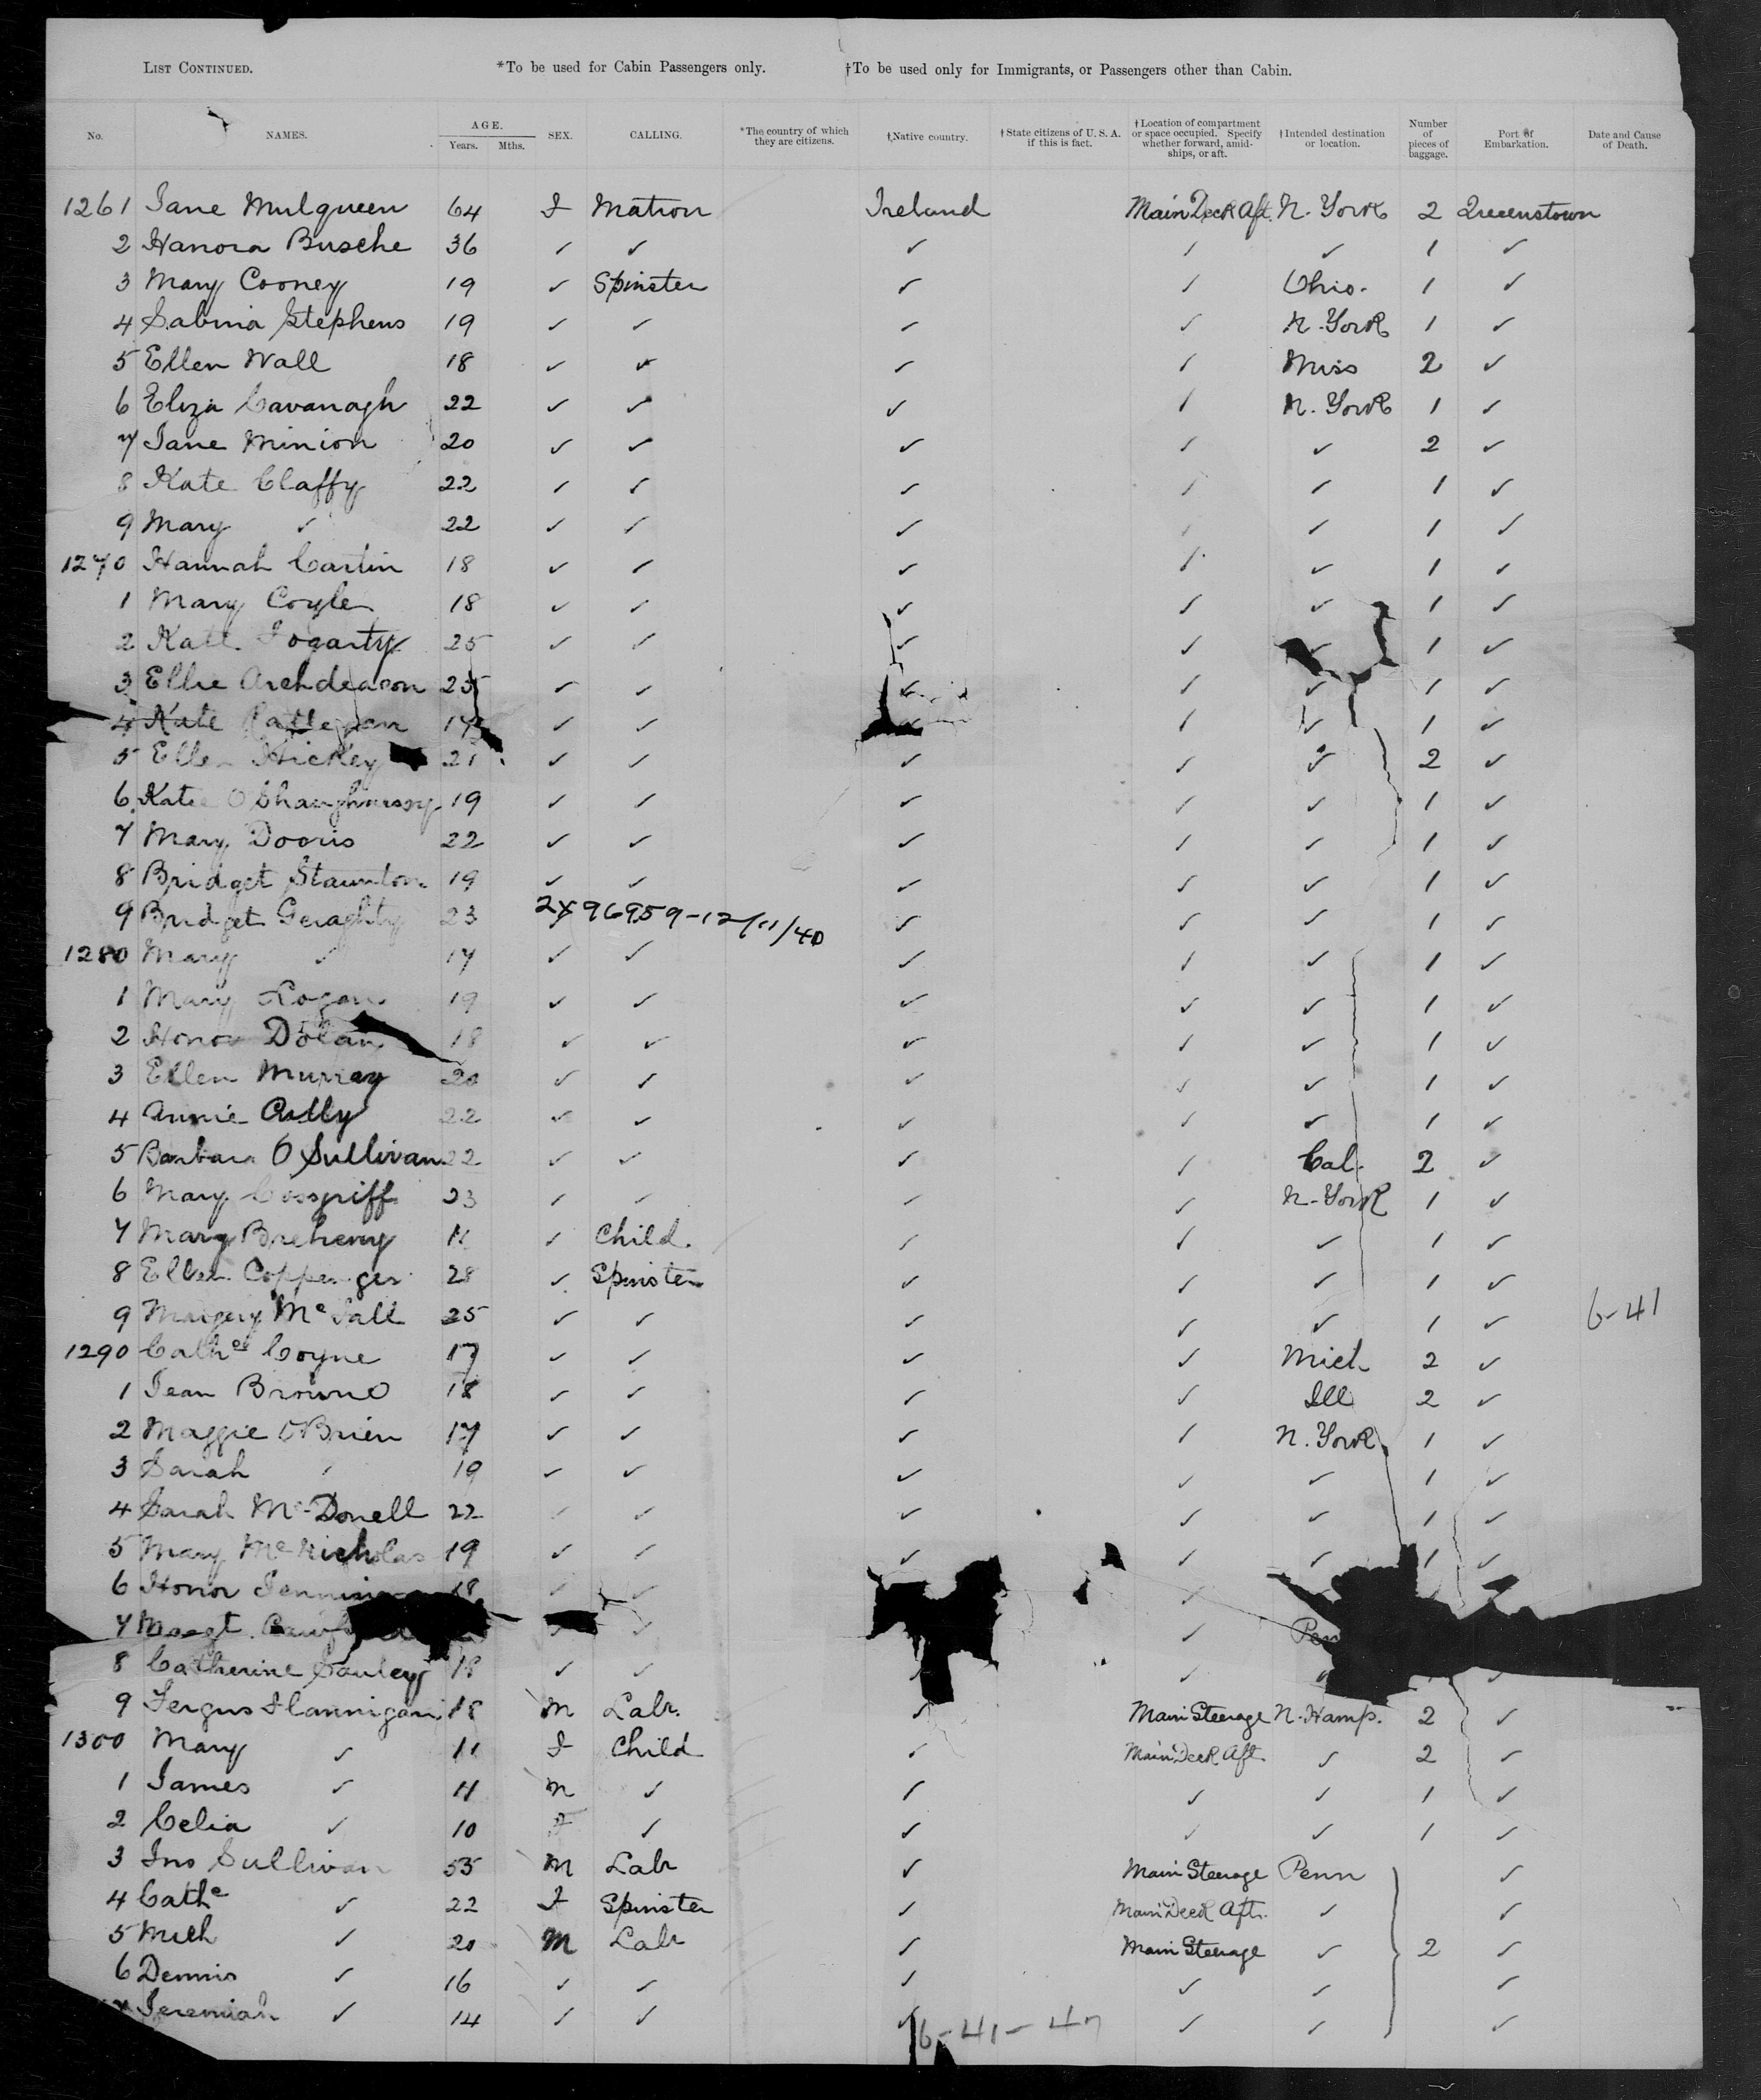 LIST CONTINUED. *To be used for Cabin Passengers only. †To be used only for Immigrants, or Passengers other than Cabin.
No. NAMES. AGE. Years. Mths. SEX. CALLING. *The country of which they are citizens. †Native country. †State citizens of U. S. A. if this is fact. †Location of compartment or space occupied. Specify whether forward, amidships, or aft. †Intended destination or location. Number of pieces of baggage. Port of Embarkation. Date and Cause of Death.
1261 Jane Mulqueen 64 F Matron Ireland Main Deck Aft. N. York 2 Queenstown
2 Hanora Busche 36 ✓ ✓ ✓ ✓ ✓ 1 ✓
3 Mary Cooney 19 ✓ Spinster ✓ ✓ Ohio. 1 ✓
4 Sabina Stephens 19 ✓ ✓ ✓ ✓ N. York 1 ✓
5 Ellen Wall 18 ✓ ✓ ✓ ✓ Miss 2 ✓
6 Eliza Cavanagh 22 ✓ ✓ ✓ ✓ N. York 1 ✓
7 Jane Minion 20 ✓ ✓ ✓ ✓ ✓ 2 ✓
8 Kate Claffy 22 ✓ ✓ ✓ ✓ ✓ 1 ✓
9 Mary ✓ 22 ✓ ✓ ✓ ✓ ✓ 1 ✓
1270 Hannah Carlin 18 ✓ ✓ ✓ ✓ ✓ 1 ✓
1 Mary Coyle 18 ✓ ✓ ✓ ✓ ✓ 1 ✓
2 Kate Fogarty 25 ✓ ✓ ✓ ✓ ✓ 1 ✓
3 Ellie Archdeacon 25 ✓ ✓ ✓ ✓ ✓ 1 ✓
4 Kate ✓ ✓ ✓ ✓ ✓ 1 ✓
5 Ellen Hickey 21 ✓ ✓ ✓ ✓ ✓ 2 ✓
6 Kate O'Shaughnessy 19 ✓ ✓ ✓ ✓ ✓ 1 ✓
7 Mary Dooris 22 ✓ ✓ ✓ ✓ ✓ 1 ✓
8 Bridget Staunton 19 ✓ ✓ ✓ ✓ ✓ 1 ✓
9 Bridget Geraghty 23 2x96959-12/11/40 ✓ ✓ ✓ 1 ✓
1280 Mary ✓ 17 ✓ ✓ ✓ ✓ ✓ 1 ✓
1 Mary Logan 19 ✓ ✓ ✓ ✓ ✓ 1 ✓
2 Honor Dolan 18 ✓ ✓ ✓ ✓ ✓ 1 ✓
3 Ellen Murray 20 ✓ ✓ ✓ ✓ ✓ 1 ✓
4 Annie 22 ✓ ✓ ✓ ✓ ✓ 1 ✓
5 Barbara O Sullivan 22 ✓ ✓ ✓ ✓ Cal. 2 ✓
6 Mary Cosgriff 23 ✓ ✓ ✓ ✓ N-York 1 ✓
7 Mary Breheny 11 ✓ Child. ✓ ✓ ✓ 1 ✓
8 Ellen Coppenger 28 ✓ Spinster ✓ ✓ ✓ 1 ✓
9 Margery Mc 25 ✓ ✓ ✓ ✓ ✓ 1 ✓ 6-41
1290 Cathe Coyne 17 ✓ ✓ ✓ ✓ Mich 2 ✓
1 Jean Browne 18 ✓ ✓ ✓ ✓ Ill 2 ✓
2 Maggie O'Brien 17 ✓ ✓ ✓ ✓ N. York 1 ✓
3 Sarah ✓ 19 ✓ ✓ ✓ ✓ ✓ 1 ✓
4 Sarah McDonell 22 ✓ ✓ ✓ ✓ ✓ 1 ✓
5 Mary McNicholas 19 ✓ ✓ ✓ ✓ ✓ 1 ✓
6 Honor 18 ✓ ✓ ✓
7 Margt. ✓ ✓ ✓ Pen
8 Catherine 18 ✓ ✓ ✓ ✓ ✓
9 Fergus Flannigan 18 M Labr. ✓ Main Steerage N. Hamp. 2 ✓
1300 Mary ✓ 11 F Child ✓ Main Deck Aft. ✓ 2 ✓
1 James ✓ 11 M ✓ ✓ ✓ ✓ 1 ✓
2 Celia ✓ 10 F ✓ ✓ ✓ ✓ 1 ✓
3 Jno Sullivan 55 M Labr ✓ Main Steerage Penn ✓
4 Cathe ✓ 22 F Spinster ✓ Main Deck Aft. ✓ ✓
5 Mich ✓ 20 M Labr ✓ Main Steerage ✓ 2 ✓
6 Dennis ✓ 16 ✓ ✓ ✓ ✓ ✓ ✓
7 Jeremiah ✓ 14 ✓ ✓ ✓ ✓ ✓ ✓
6-41-47